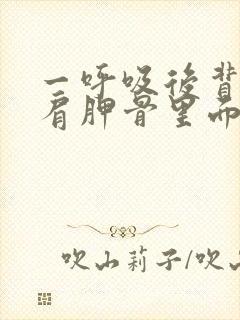 一呼吸后背
肩胛骨里面
吹山莉子/吹山